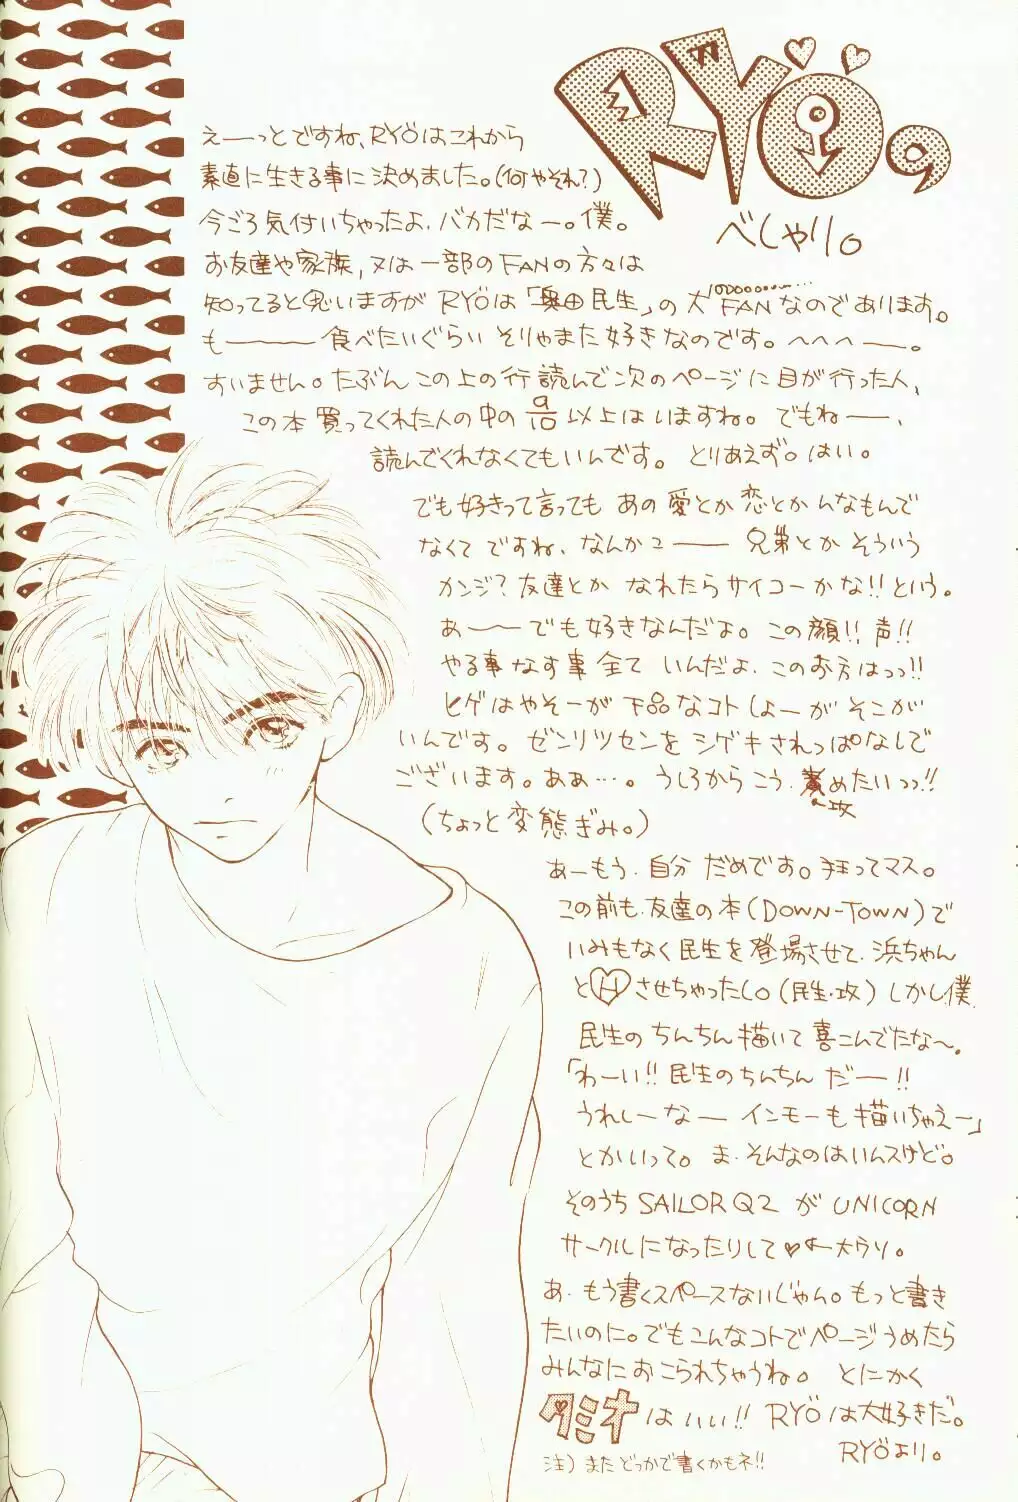 RYÖの
べしゃり。
えーっとですね、RYÖはこれから
素直に生きる事に決めました。(何やそれ?)
今ごろ気付いちゃったよ、バカだなー。僕。
お友達や家族, 又は一部のFANの方々は
知ってると思いますが RYÖは「奥田民生」の大FANなのであります。
も―――食べたいぐらい そりゃまた好きなのです。へへへー。
すいません。たぶん この上の行 読んで次のページに目が行った人、
この本 買ってくれた人の中の 9/10 以上はいますね。でもねー、
読んでくれなくてもいんです。とりあえず。はい。
でも好きって言っても あの 愛とか 恋とかんなもんで
なくて ですね、なんかこー― 兄弟とか そういう
カンジ? 友達とか なれたらサイコーかな!! という。
あ――でも好きなんだよ。この顔!! 声!!
やる事なす事 全て いんだよ、このお方はっっ!!
ヒゲはやそーが 下品なコトしよーが そこが
いんです。ゼンリツセンを シゲキされっぱなしで
ございます。あぁ…。うしろからこう、めたいっっ!!
攻
(ちょっと変態ぎみ。)
あーもう、自分 だめです。狂ってマス。
この前も、友達の本(DOWN-TOWN)で
いみもなく民生を登場させて、浜ちゃん
とHさせちゃったし。(民生・攻) しかし、僕、
民生の ちんちん描いて 喜こんでたな〜。
「わーい!! 民生のちんちん だー!!
うれしーなー インモーも 描いちゃえー」
とかいって。ま、そんなのはいんスけど。
そのうち SAILOR Q2 が UNICORN
サークルになったりして♥←大ウソ。
あ、もう書くスペースないじゃん。もっと書き
たいのに。でもこんなコトでページうめたら
みんなにおこられちゃうね。とにかく
タミオはいい!! RYÖは大好きだ。
RYÖより。
注) またどっかで書くかもネ!!